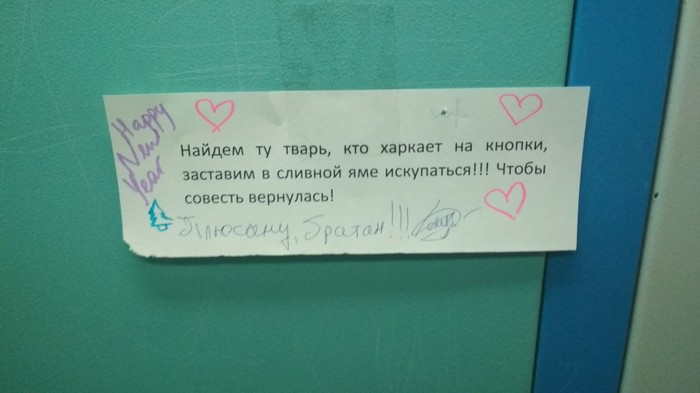 Happy
New
Year
Найдем ту тварь, кто харкает на кнопки,
заставим в сливной яме искупаться!!! Чтобы
совесть вернулась!
Плюсану, братан!!!